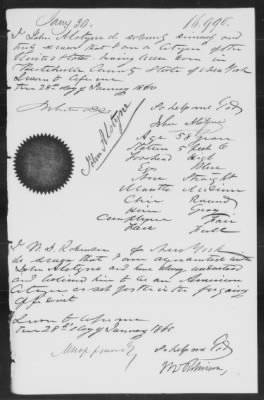 Jany 30. 16,990.
I John Alstyne do solemnly sincerely and
truly swear that I am a Citizen of the
United States having been born in
Westchester County State of New York
Sworn to before me
this 28th day of January 1860
So help me God
John Alstyne
John Alstyne
Age 58 years
Stature 5 feet 6
Forehead High
Eyes Blue
Nose Straight
Mouth Medium
Chin Round
Hair Gray
Complexion Fair
Face Full
I W. D. Robinson of New York
do swear that I am acquainted with
John Alstyne and have long understood
and believed him to be an American
Citizen as set forth in the foregoing
affidavit
Sworn to before me
this 28th day of January 1860
So help me God
W D Robinson